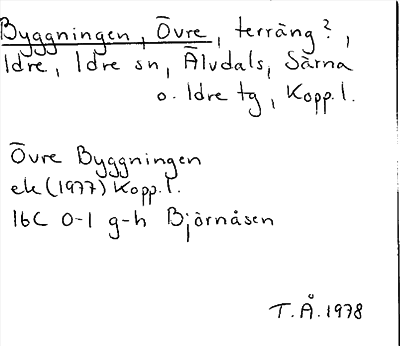 Byggningen, Övre, terräng?,
Idre, Idre sn, Älvdals, Särna
o. Idre tg, Kopp.l.
Övre Byggningen
ek (1977) Kopp.l.
16C 0-1 g-h Björnåsen
T.Å.1978